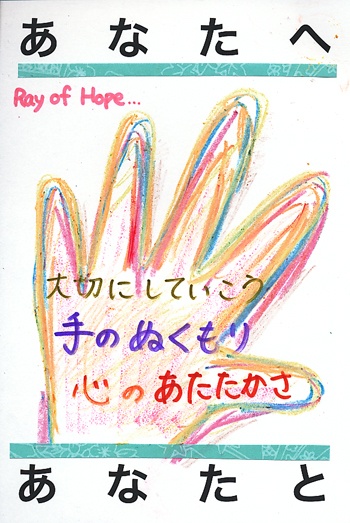 あなたへ
Ray of Hope...
大切にしていこう
手のぬくもり
心のあたたかさ
あなたと